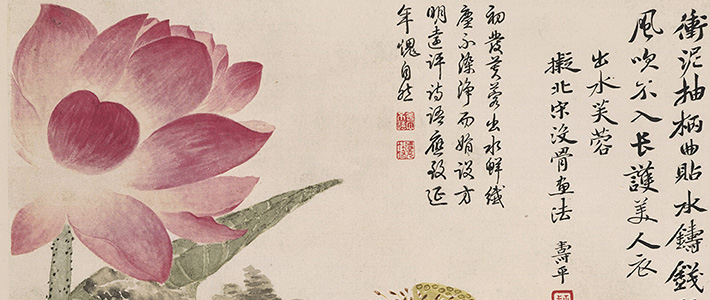 衝泥抽柄曲貼水鑄錢
風吹不入長護美人衣
出水芙蓉
擬北宋沒骨畫法 壽平
初發芙蓉出水鮮纖
塵不染淨而娟設方
明遠評詩語應致延
年愧自然